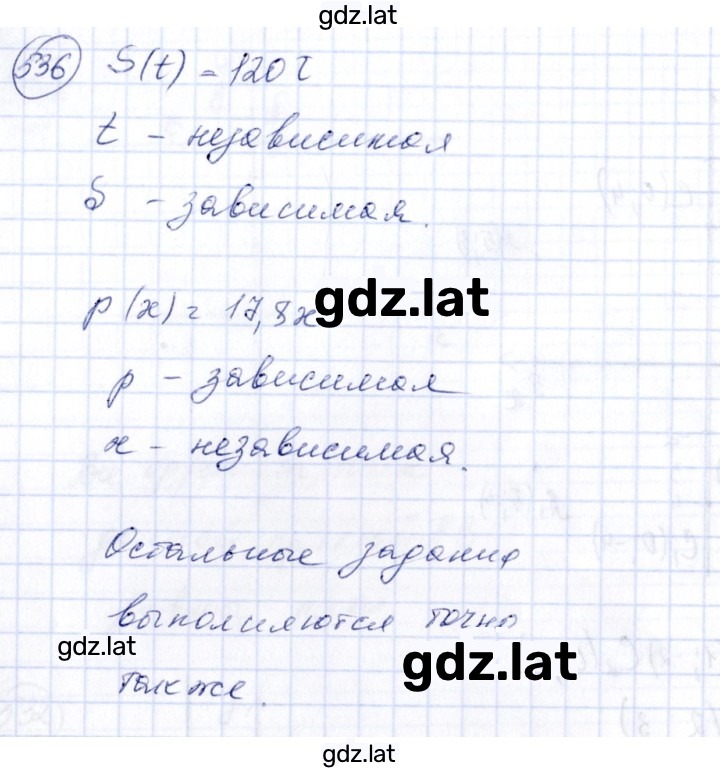 gdz.lat
536 S(t) = 120t
t - независимая
S - зависимая.
p(x) = 17,8x
gdz.lat
p - зависимая
x - независимая.
Остальные задания
выполняются точно
gdz.lat
gdz.lat
также.
gdz.lat